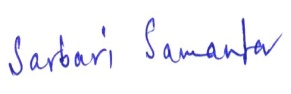 Sarbari Samanta